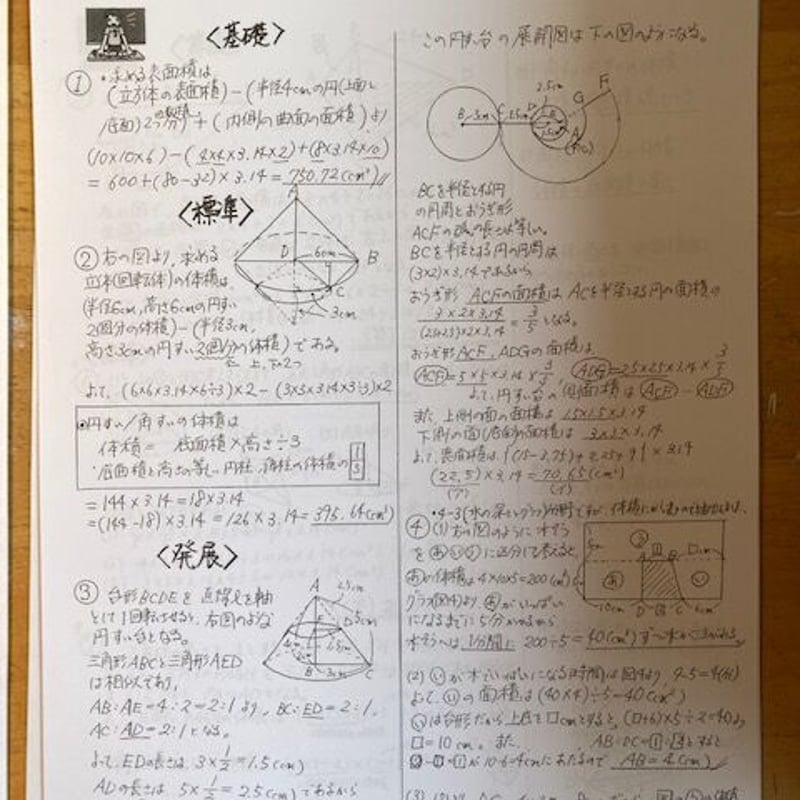 〈基礎〉
① ・求める表面積は
(立方体の表面積)-(半径4cmの円(上面と
底面)2つ分の面積)+(内側の曲面の面積)より
(10×10×6)-(4×4×3.14×2)+(8×3.14×10)
=600+(80-32)×3.14=750.72(cm²)
〈標準〉
A
D 6cm B
C
3cm
② 右の図より、求める
立体(回転体)の体積は、
(半径6cm、高さ6cmの円すい
2個分の体積)-(半径3cm,
高さ3cmの円すい2個分の体積)である。
よって、(6×6×3.14×6÷3)×2-(3×3×3.14×3÷3)×2
円すい/角すいの体積は
体積= 底面積×高さ÷3
底面積と高さの等しい円柱、角柱の体積の 1/3
=144×3.14-18×3.14
=(144-18)×3.14=126×3.14=395.64(cm³)
〈発展〉
③ 台形BCDEを直線えを軸
として1回転させると、右図のような
円すい台となる。
A
2.5cm
E D 5cm
B 3cm C
三角形ABCと三角形AED
は相似であり、
AB:AE=4:2=2:1より、BC:ED=2:1,
AC:AD=2:1となる。
よって、EDの長さは 3×1/2=1.5(cm)
ADの長さは 5×1/2=2.5(cm)であるから
この円すい台の展開図は下の図のようになる。
2.5cm F
G
B 3cm C 2.5cm D
A
BCを半径とする円
の円周とおうぎ形
ACFの弧の長さは等しい。
BCを半径とする円の円周は
(3×2)×3.14であるから
おうぎ形ACFの面積はACを半径とする円の面積の
3×2×3.14 = 3/5となる。
おうぎ形ACF、ADGの面積は、
ACF=5×5×3.14×3/5 ADG=2.5×2.5×3.14×3/5
よって、円すい台の側面積は ACF-ADG
また、上側の面の面積は 1.5×1.5×3.14
下側の面(底面)の面積は 3×3×3.14
よって、表面積は{(15-3.75)+2.25+9}×3.14
(22.5)×3.14=70.65(cm²)
④ (1)右の図のように水そう
を あ い う に区分して考えると、
あの体積は 4×10×5=200(cm³)
グラフ(図4)より、あがいっぱい
になるまでに5分かかるから
水そうへは、1分間に 200÷5=40(cm³)ずつ水が
う
A B
あ い
10cm D C 6cm
(2) いが水でいっぱいになる時間は図4より 9-5=4(分)
よって、いの面積は(40×4)÷5=40(cm²)
いは台形だから上底を□cmとすると、(□+6)×5÷2=40より
□=10cm。また、AB:DC=
が10-6=4cmにあたるので AB=4(cm)
(3)